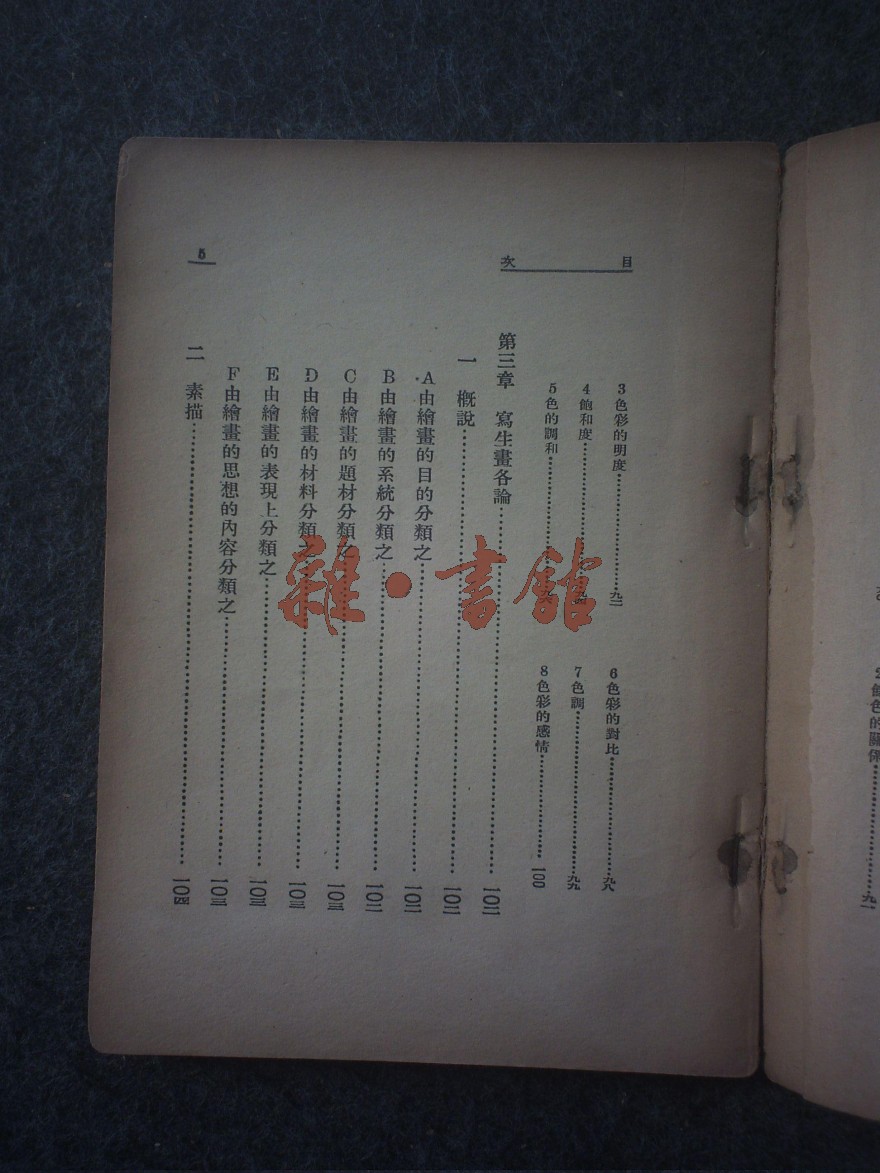 色的關係
目次
3色彩的明度……九二
6色彩的對比……九八
4飽和度……九四
7色調……九九
5色的調和……
8色彩的感情……一〇〇
第三章 寫生畫各論……一〇二
一 概說……一〇二
A由繪畫的目的分類之……一〇二
B由繪畫的系統分類之……一〇二
C由繪畫的題材分類之……一〇三
D由繪畫的材料分類之……一〇三
E由繪畫的表現上分類之……一〇三
F由繪畫的思想的內容分類之……一〇三
二 素描……一〇四
5
雜·書館